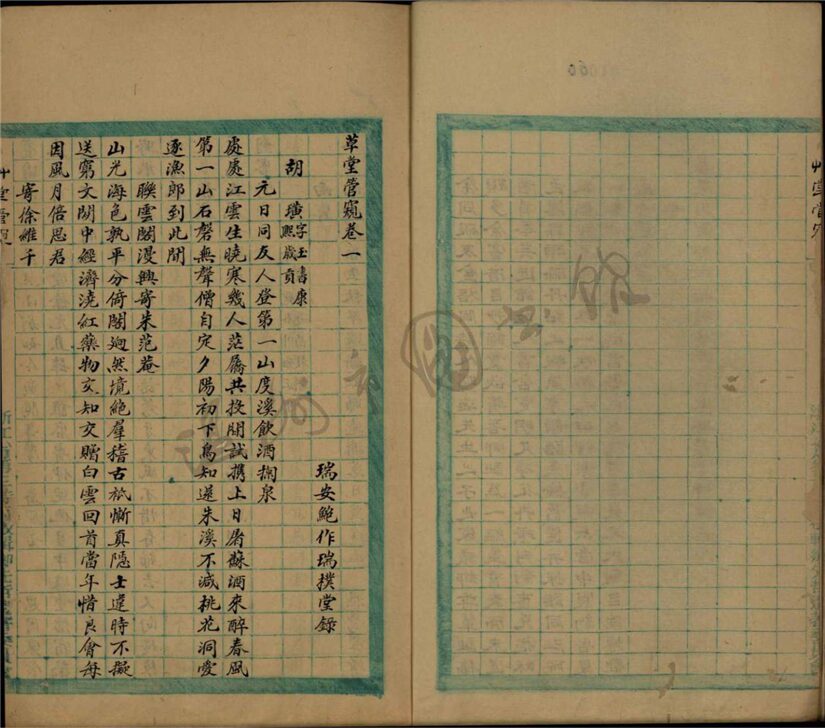 草堂管窺卷一
瑞安鮑作瑞撲堂錄
胡璜字玉書康
熙歲貢
元日同友人登第一山度溪飲酒掬泉
處處江雲生曉寒幾人茫屩共投閒試攜上日屠蘇酒來醉春風
第一山石磬無聲僧自定夕陽初下鳥知還朱溪不減桃花洞愛
逐漁郎到此間
聯雲閣漫興寄朱范菴
山光海色孰平分倚閣迥然境絕羣稽古祇慚真隱士違時不擬
送窮文閒中經濟澆紅藥物交知交贈白雲回首當年惜良會每
因風月倍思君
寄徐維千
溫州市圖書館